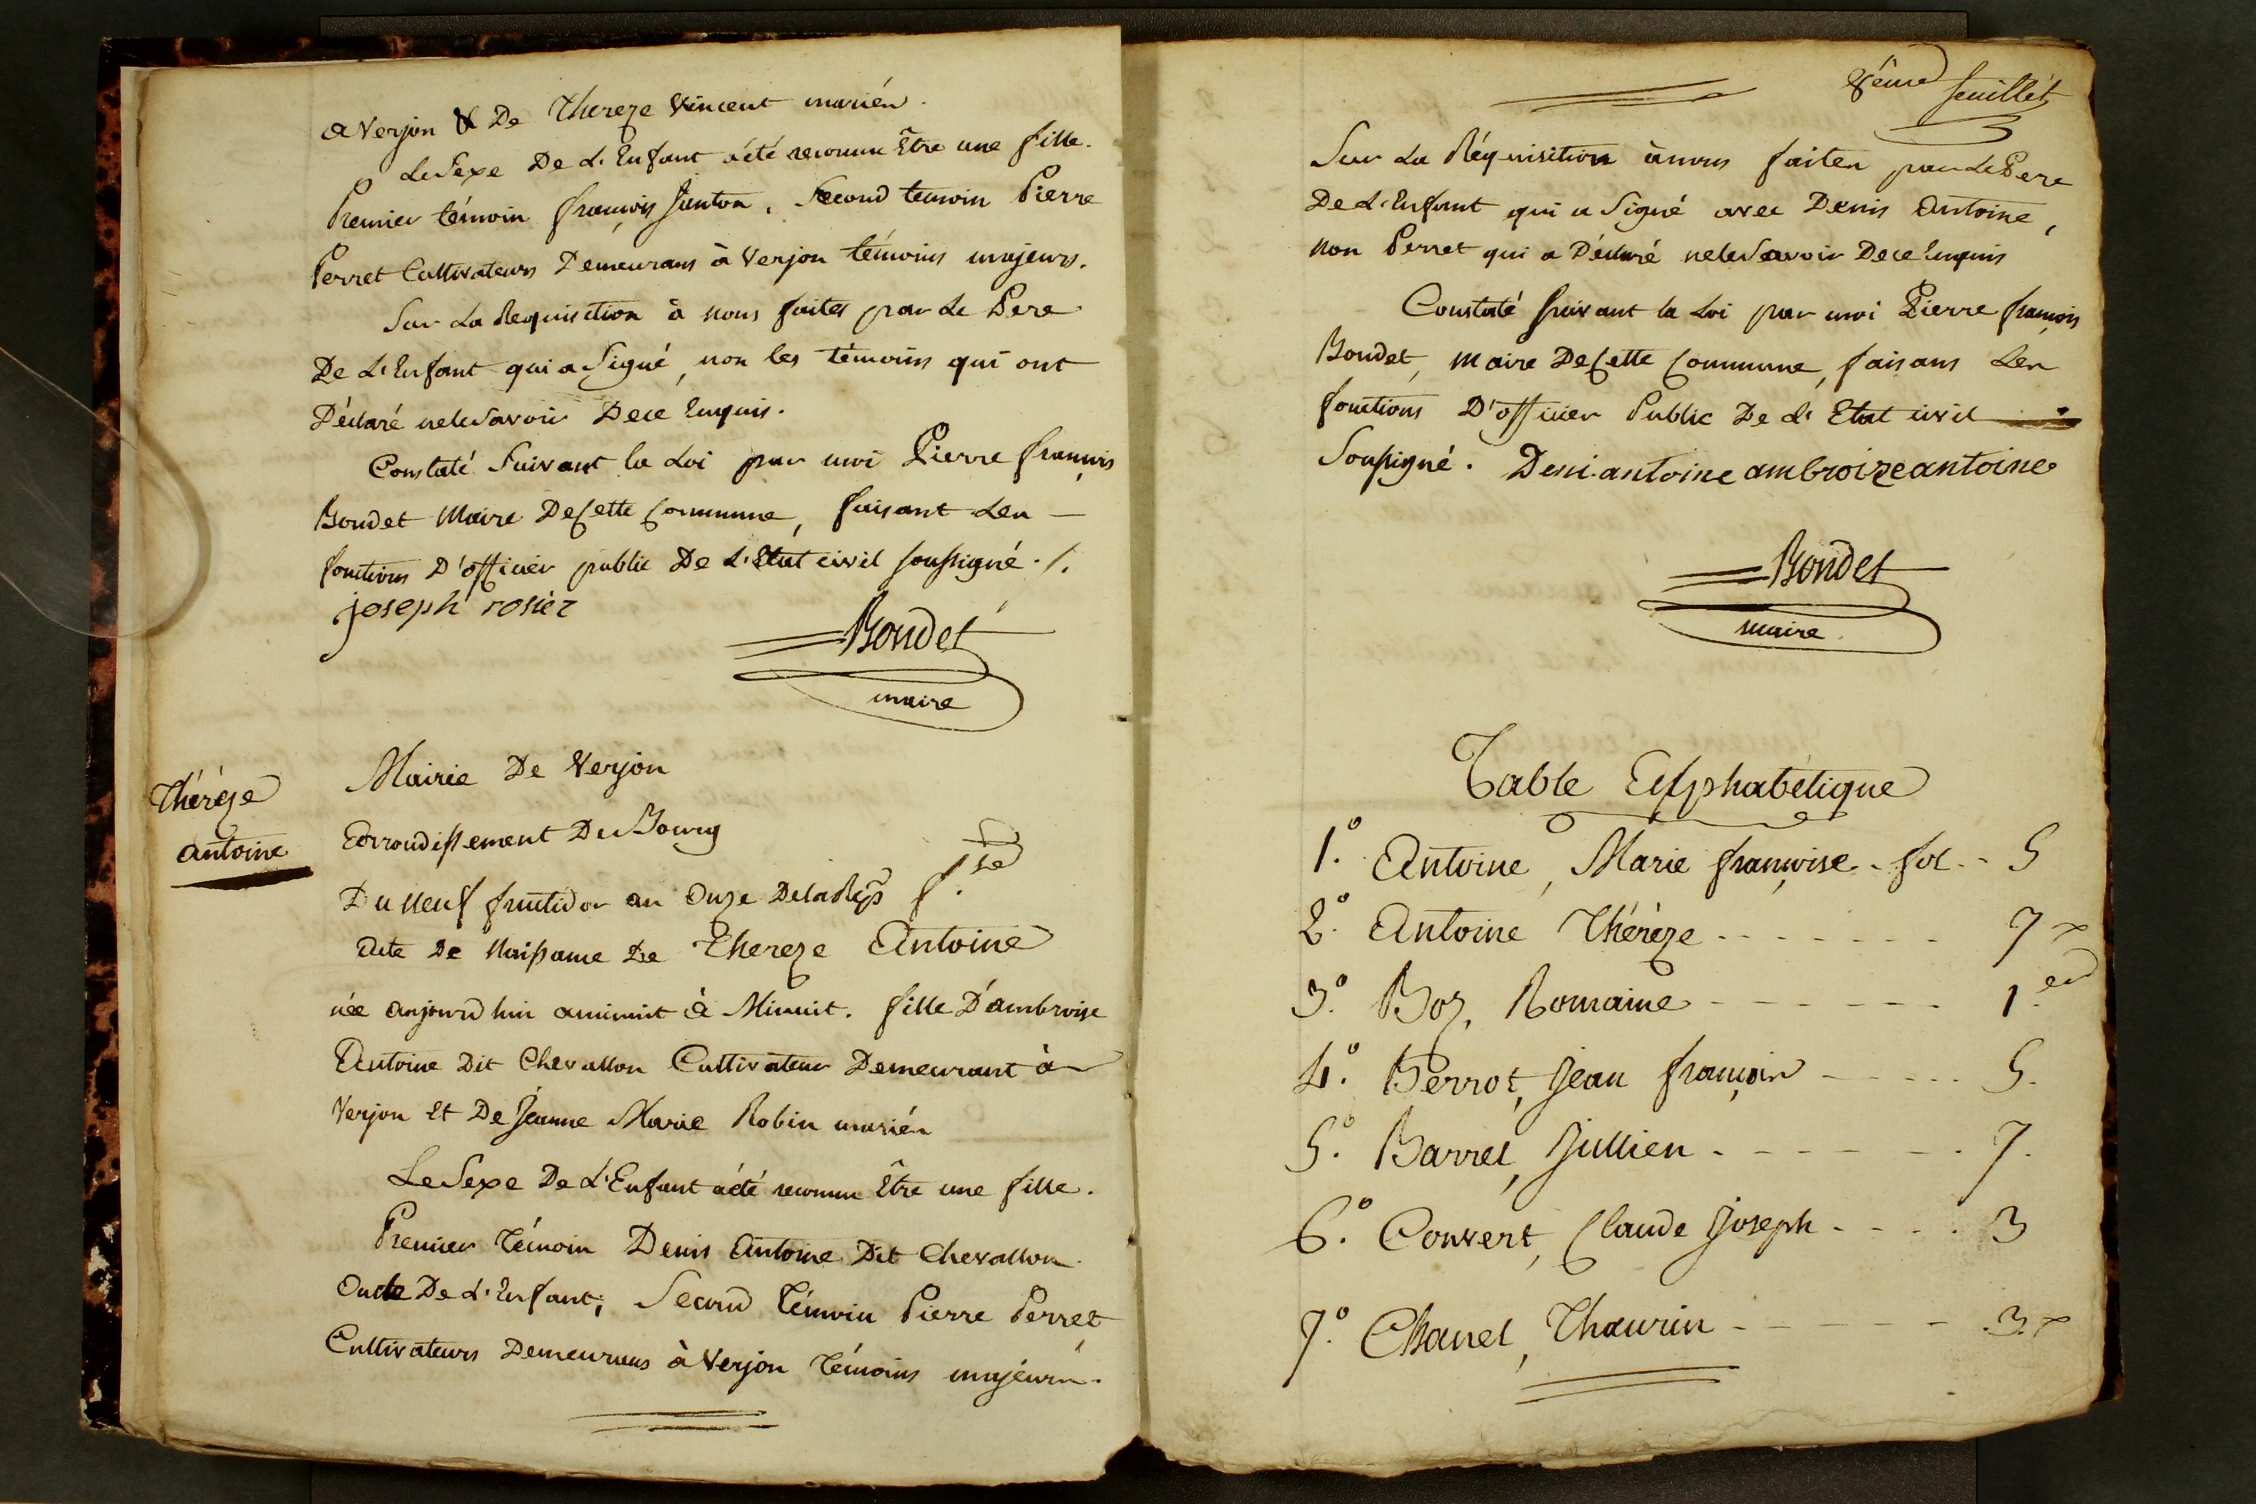 a Verjon & De Thereze Vincent mariés.
Le Sexe De L'Enfant a été reconnu Être une fille.
Premier témoin françois Janton, Second temoin Pierre
Perret Cultivateurs Demeurans à Verjon témoins majeurs.
Sur La Requisition à nous faites par Le Pere
De L'Enfant qui a Signé, non les témoins qui ont
Déclaré ne le Savoir De ce Enquis.
Constaté Suivant la Loi par moi Pierre françois
Bondet Maire De Cette Commune, faisant Les
fonctions D'officier public De L'Etat civil soussigné ./.
joseph rosier
Bondet
maire
Thérèze
antoine
Mairie De Verjon
Arrondissement De Bourg
Du Neuf fructidor an Onze De la Rép. f.se
Acte De Naissance De Thereze Antoine
née aujourd'hui a minuit à Minuit. fille D'ambroise
Antoine Dit Chevallon Cultivateur Demeurant à
Verjon Et De Jeanne Marie Robin mariés
Le Sexe De L'Enfant a été reconnu Être une fille.
Premier Témoin Denis Antoine Dit Chevallon
Oncle De L'Enfant; Second Témoin Pierre Perret
Cultivateurs Demeurans à Verjon Témoins majeurs.
8ême feuillet
Sur La Réquisition à nous faites par Le Pere
De L'Enfant qui a Signé avec Denis Antoine,
non Perret qui a Déclaré ne le Savoir De ce Enquis
Constaté suivant la Loi par moi Pierre françois
Bondet, Maire De Cette Commune, faisans Les
fonctions D'officier Public De L'Etat civil
Soussigné. Deni antoine ambroize antoine
Bondet
maire
Table Alphabétique
1.º Antoine, Marie françoise .. fol .. 5
2.º Antoine Thérèze 7
3.º Boz, Romaine 1.er
4.º Berrot, Jean françois 5.
5.º Barret, Jullien 7.
6.º Convert, Claude Joseph 3
7.º Chanel, Thaurin 3